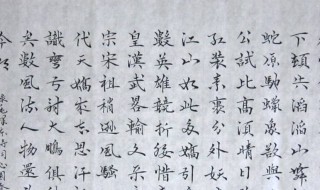 下頓失滔滔山舞
蛇原馳蠟象欲與
公試比高須晴日
紅裝素裹分外妖
江山如此多嬌引
數英雄競折腰惜
皇漢武略輸文采
宗宋祖稍遜風騷
代天驕成吉思汗
識彎弓射大鵰俱
矣數風流人物還
今朝